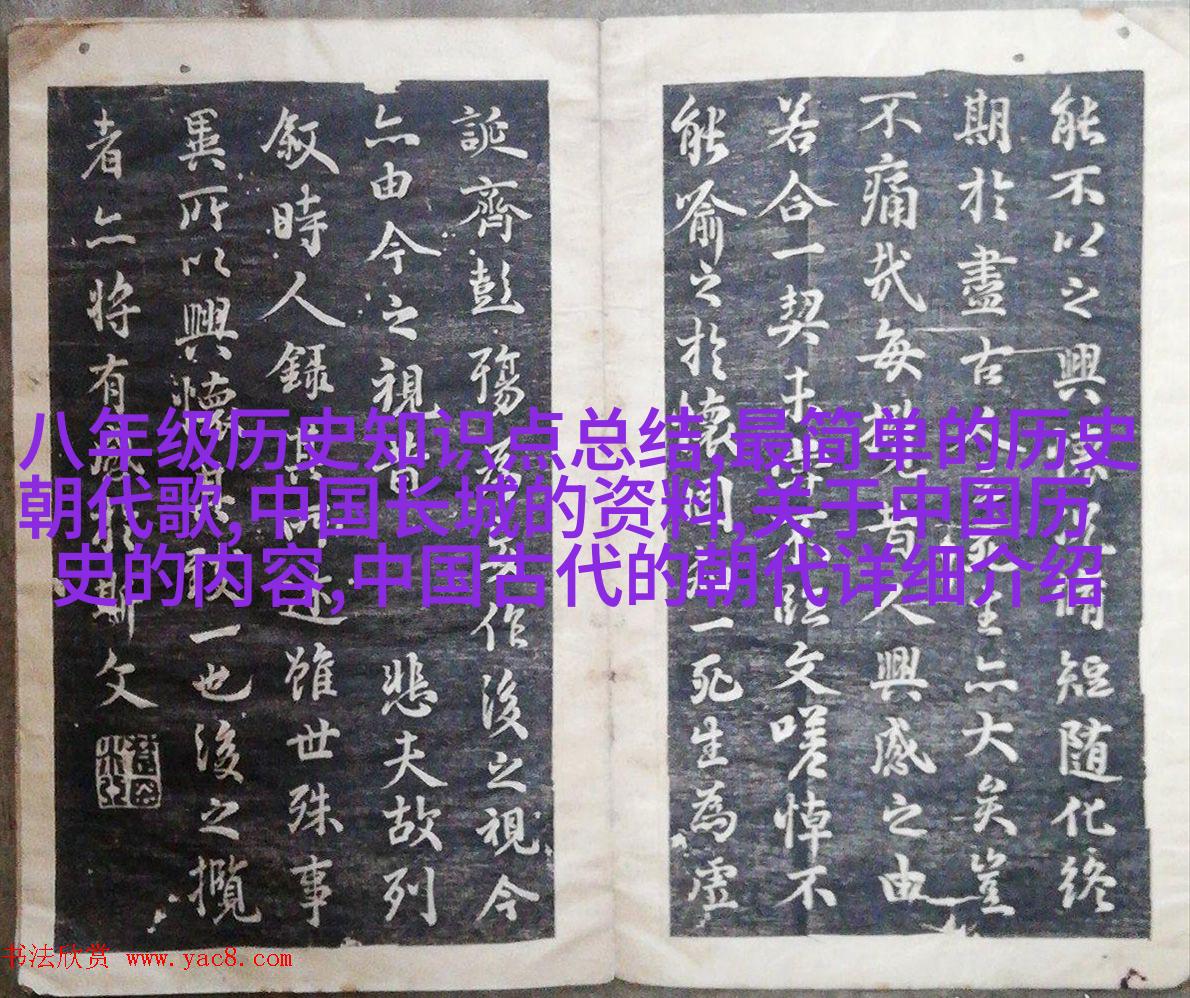 能不以之興懷況脩短随化終
期於盡古人云死生亦大矣豈
不痛哉每攬昔人興感之由
若合一契未嘗不臨文嗟悼不
能喻之於懷固知一死生為虛
誕齊彭殤為妄作後之視今
亦由今之視昔悲夫故列
叙時人録其所述雖世殊事
異所以興懷其致一也後之攬
者亦將有感於斯文
八年级历史知识点总结,最简单的历史
朝代歌,中国长城的资料,关于中国历
史的内容,中国古代的朝代详细介绍
书法欣赏 www.yac8.com